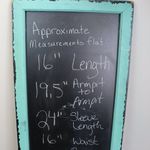 Approximate
Measurements flat
16" Length
19.5" Armpit
to
Armpit
24" Sleeve
Length
16" Waist